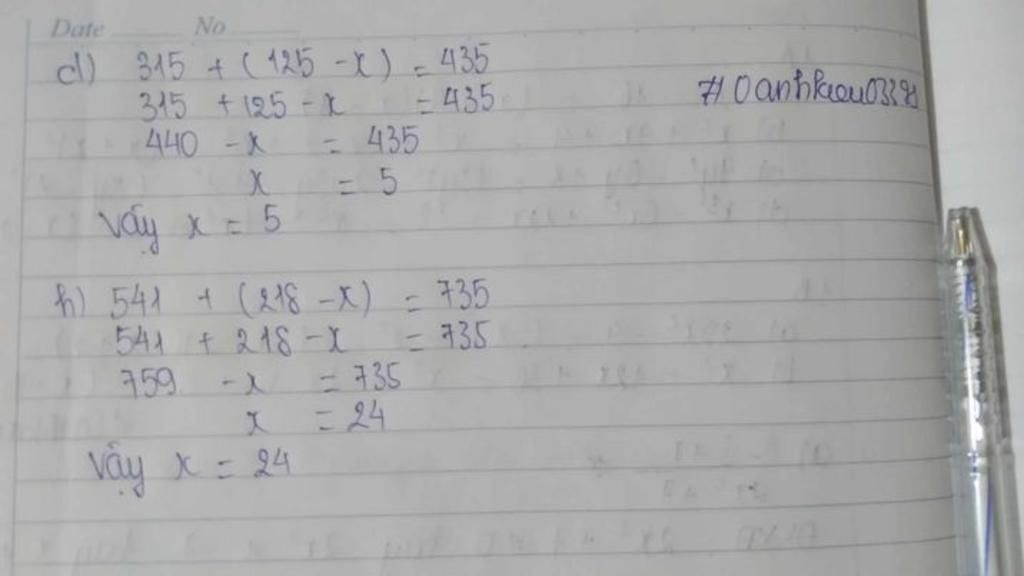 Date No
d) 315 + (125 - x) = 435
315 + 125 - x = 435
440 - x = 435
x = 5
Vậy x = 5
h) 541 + (218 - x) = 735
541 + 218 - x = 735
759 - x = 735
x = 24
Vậy x = 24